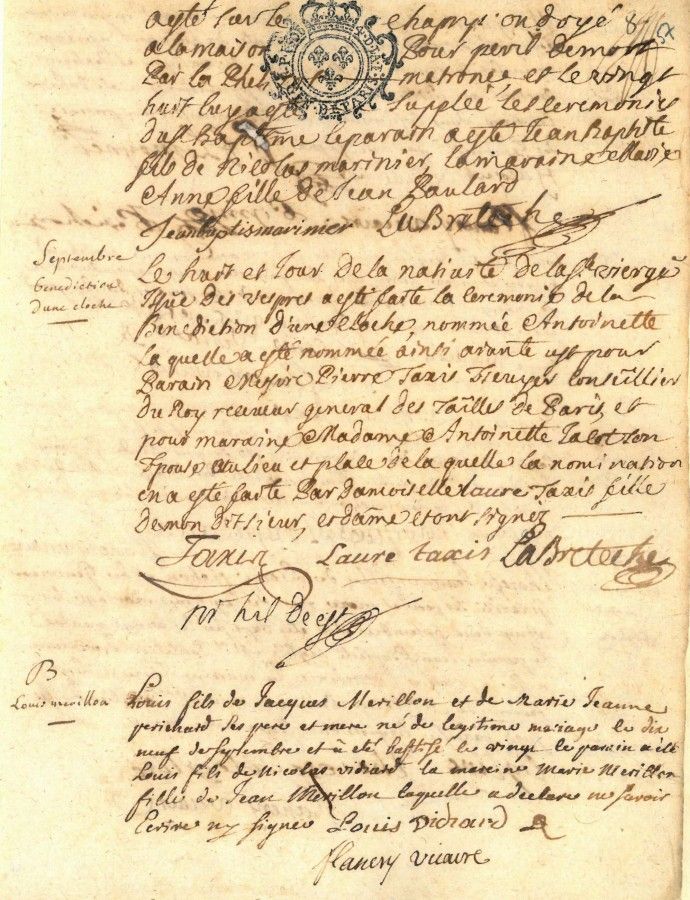 a esté sur le champ ondoyé 8
a la maison Pour peril de mort
Par la matronne, et le vingt
huit luy a esté supplée les ceremonies
du St Baptême le parain a esté Jean Baptiste
fils de Nicolas marinier, la maraine Marie
Anne fille de Jean Baulard
Jean baptis marinier La Breteche
Septembre
benediction
d'une cloche
Le huit et Jour de la nativité de la Ste vierge
Issüe des vespres a esté faite la ceremonie de la
Benediction d'une cloche, nommée Antoinette
la quelle a esté nommée ainsi ayante eust pour
Parain Messire Pierre Taxis Escuyer Conseiller
du Roy receveur general des Tailles de Paris, et
pour maraine Madame Antoinette
Epouse Au lieu et place de la quelle la nomination
en a esté faite Par damoiselle laure Taxis fille
de mon dit sieur, et dame et ont signez
Taxis Laure taxis La Breteche
nihil deest
B
Louis merillon
Louis fils de Jacques Merillon et de Marie Jeanne
perichard ses pere et mere né de legitime mariage le dix
neuf de septembre et a été baptisé le vingt le parain a été
Louis fils de Nicolas vidiard la mareine Marie Merillon
fille de Jean Merillon laquelle a declaré ne savoir
Ecrire ny signer Louis Vidiard
flancry vicaire